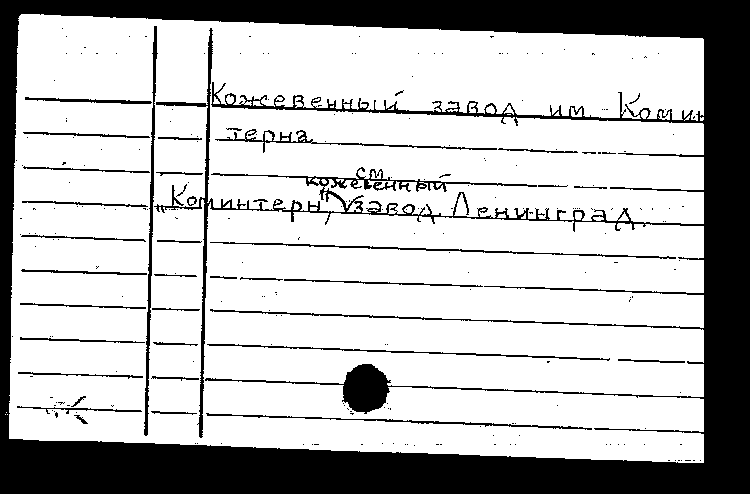 Кожевенный завод им. Комин
терна
см.
кожевенный
„Коминтерн", завод. Ленинград.